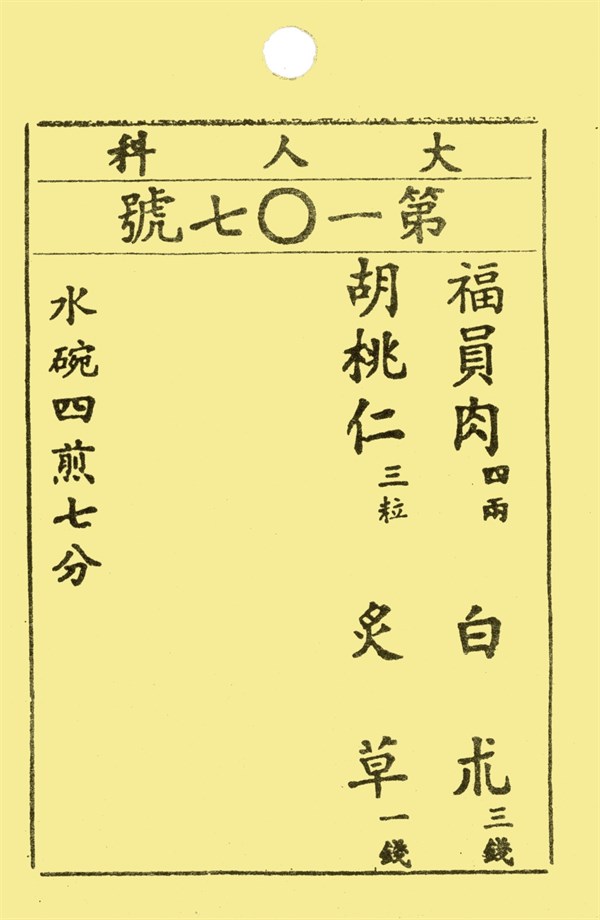 大人科
第一〇七號
福員肉四兩 白朮三錢
胡桃仁三粒 炙草一錢
水碗四煎七分